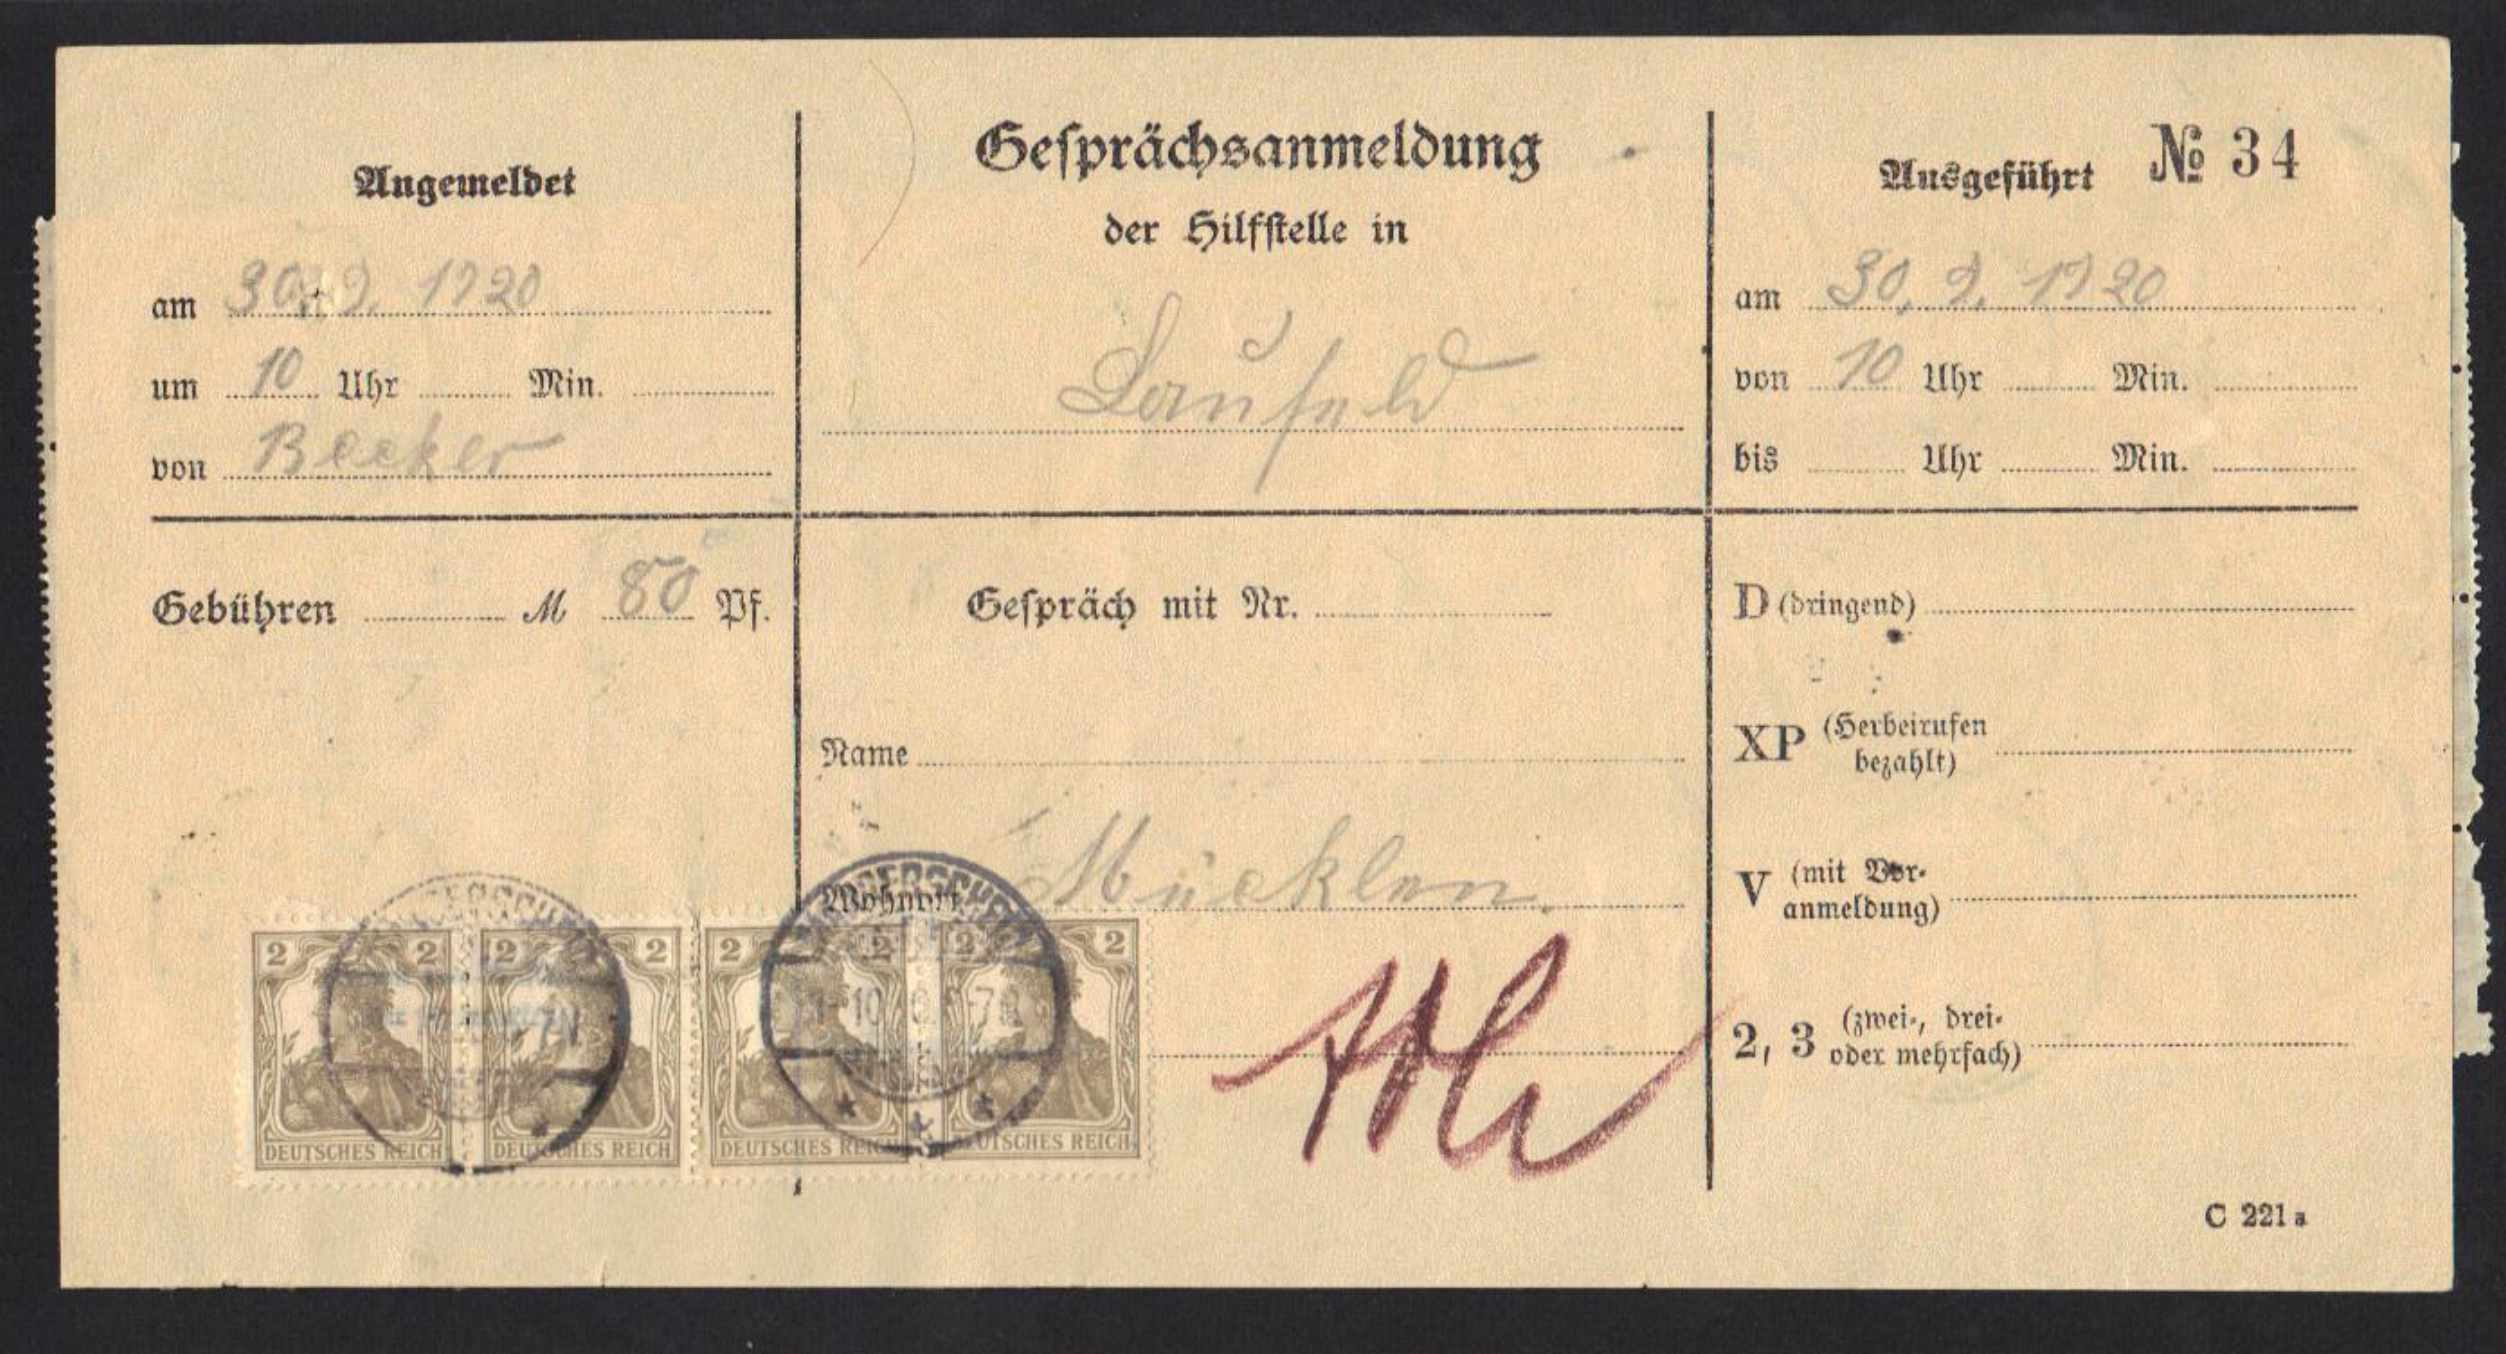 Angemeldet
am 30. 9. 1920
um 10 Uhr Min.
von Becker
Gesprächsanmeldung
der Hilfstelle in
Laufeld
Ausgeführt № 34
am 30. 9. 1920
von 10 Uhr Min.
bis Uhr Min.
Gebühren M 80 Pf.
Gespräch mit Nr.
Name
Wohnort Mücklen.
D (dringend)
XP (Herbeirufen
bezahlt)
V (mit Vor-
anmeldung)
2, 3 (zwei-, drei-
oder mehrfach)
2 2 2 2 2 2 2 2
DEUTSCHES REICH DEUTSCHES REICH DEUTSCHES REICH DEUTSCHES REICH
C 221 a